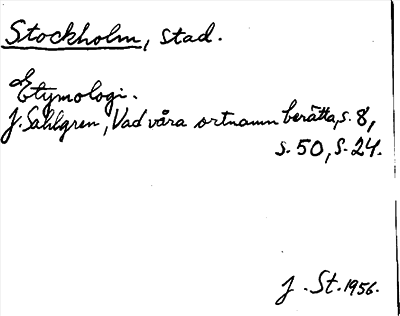 Stockholm, stad.
Etymologi.
J. Sahlgren, Vad våra ortnamn berätta, s. 8,
s. 50, S. 24.
J. St. 1956.